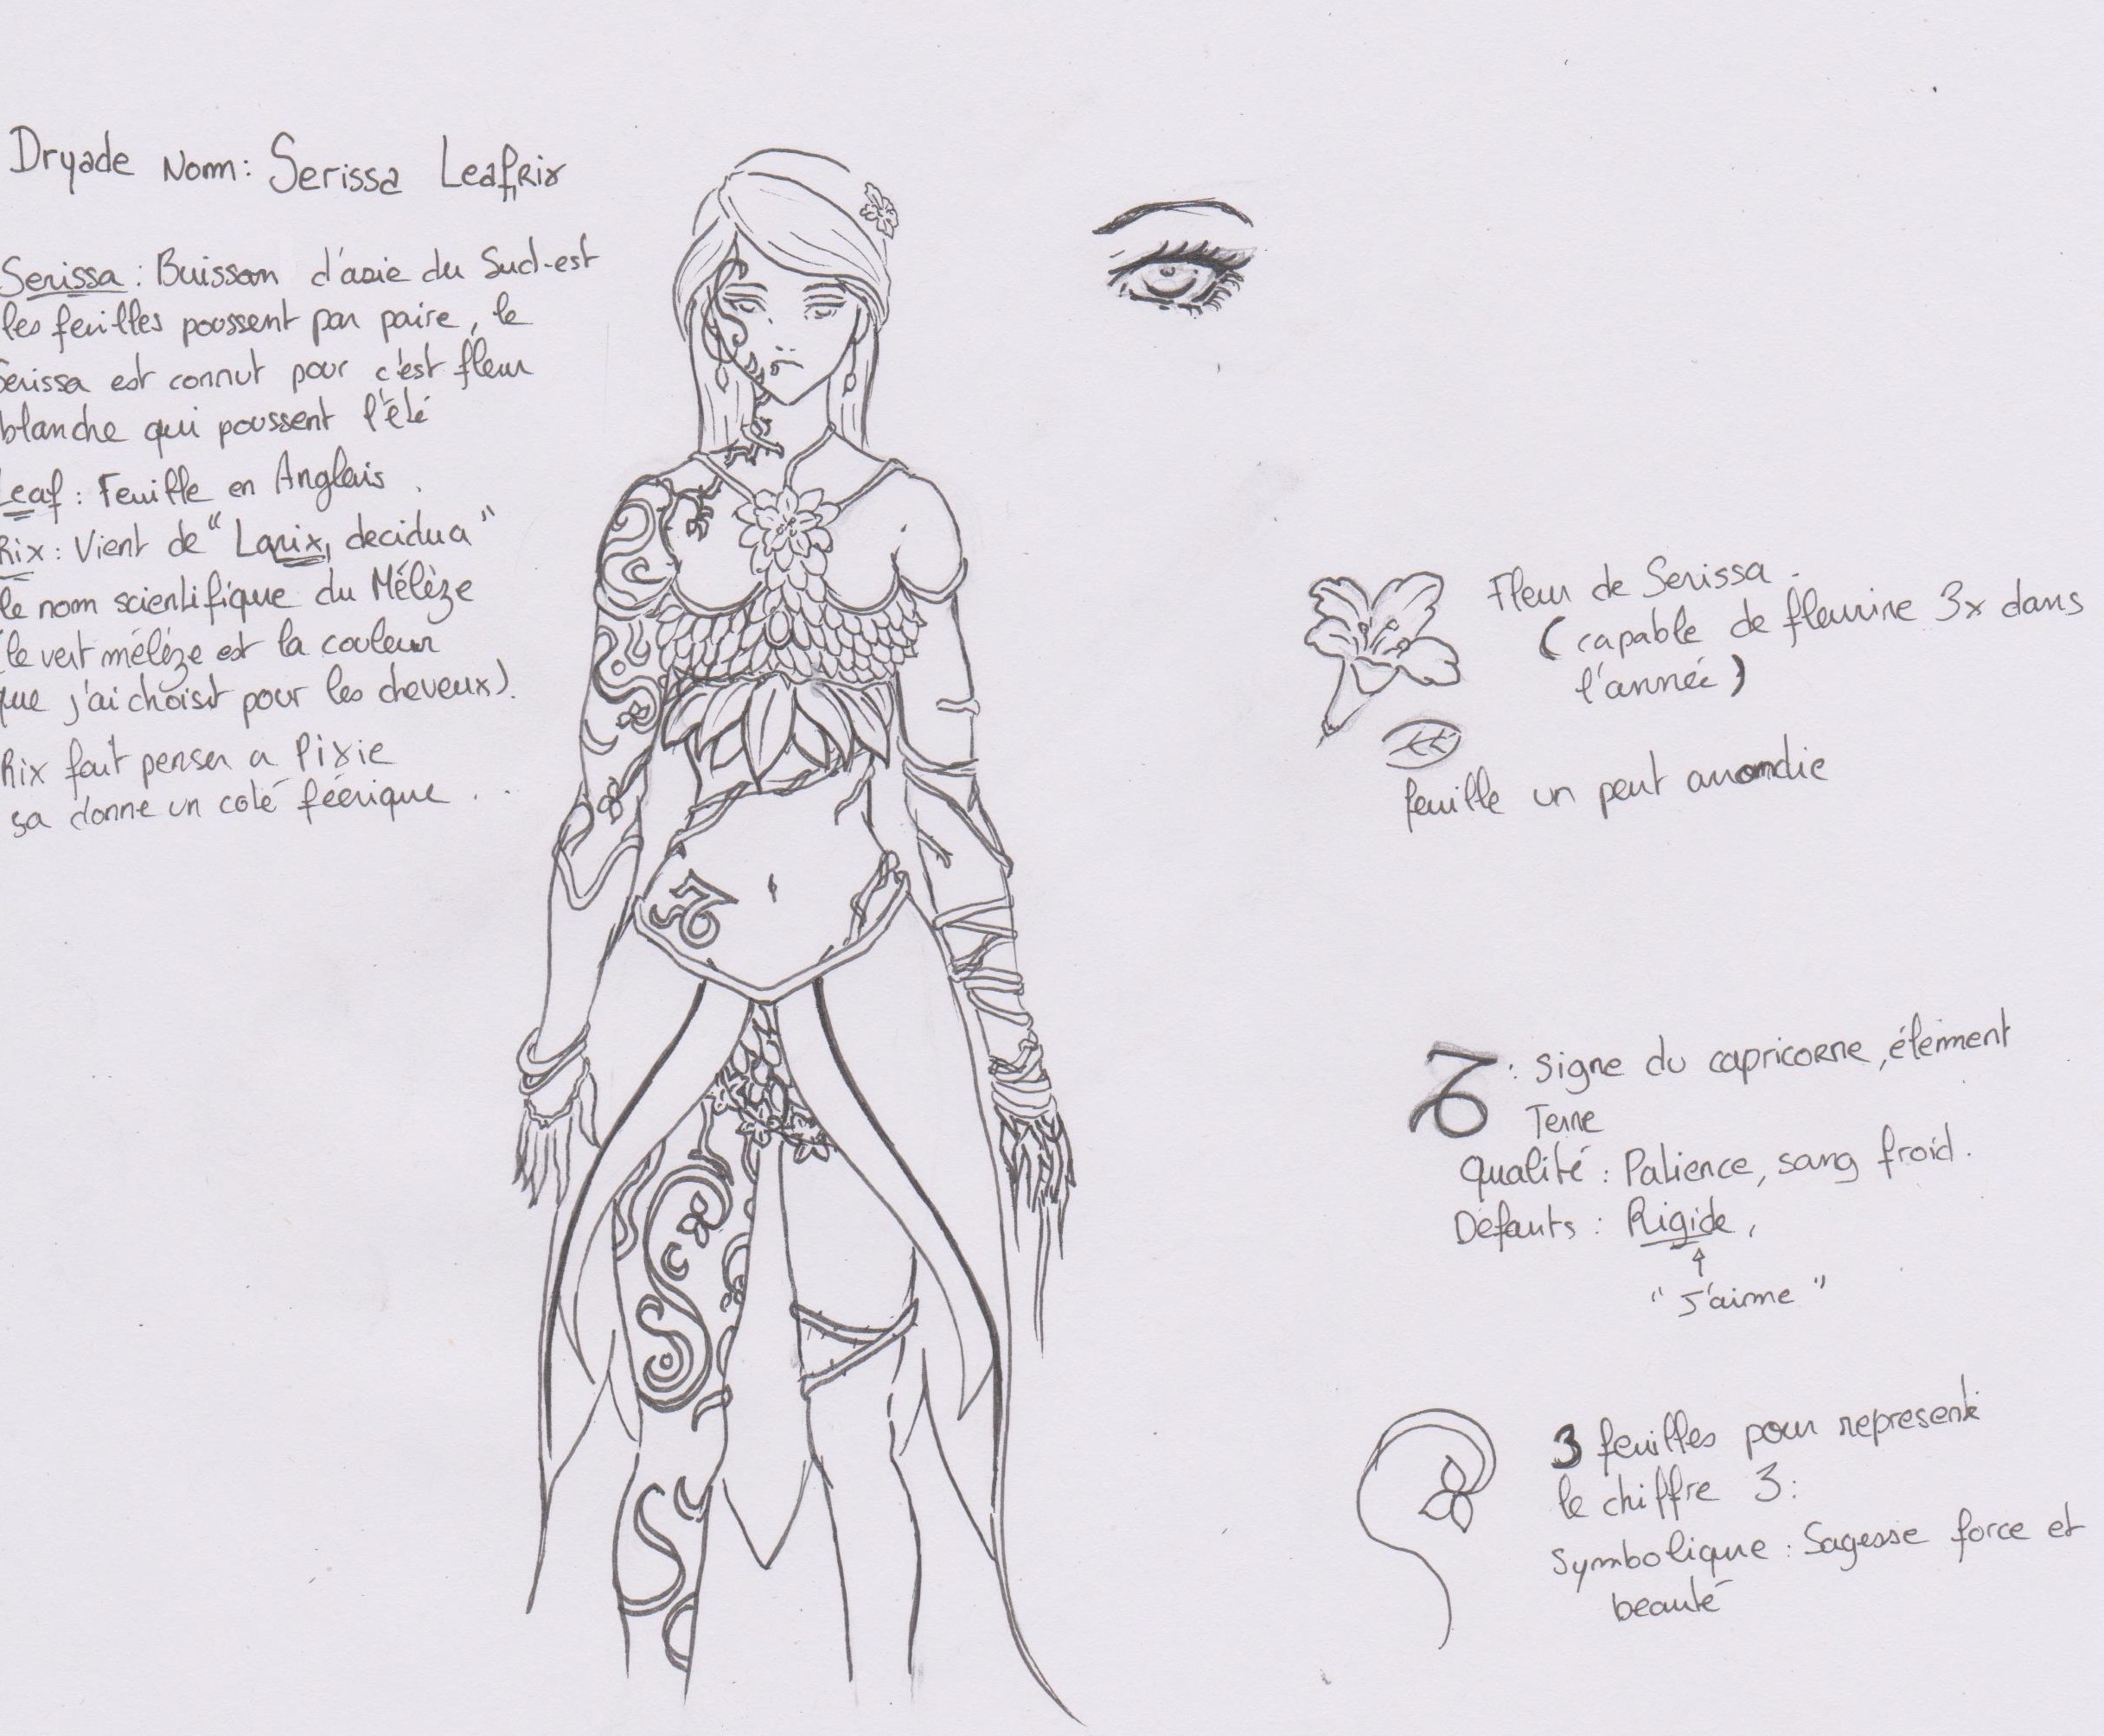 Dryade Nom: Serissa Leafrix
Serissa : Buisson d'asie du Sud-est
les feuilles poussent par paire, le
Serissa est connut pour c'est fleur
blanche qui poussent l'été
Leaf : Feuille en Anglais.
Rix : Vient de "Larix, decidua"
le nom scientifique du Mélèze
(le vert mélèze est la couleur
que j'ai choisit pour les cheveux).
Rix fait penser a Pixie
sa donne un coté féérique ..
Fleur de Serissa.
(capable de fleurire 3x dans
l'année)
feuille un peut arrondie
: Signe du capricorne, élément
Terre
Qualité : Patience, sang froid.
Défauts : Rigide,
"J'aime"
3 feuilles pour represente
le chiffre 3:
Symbolique : Sagesse force et
beauté